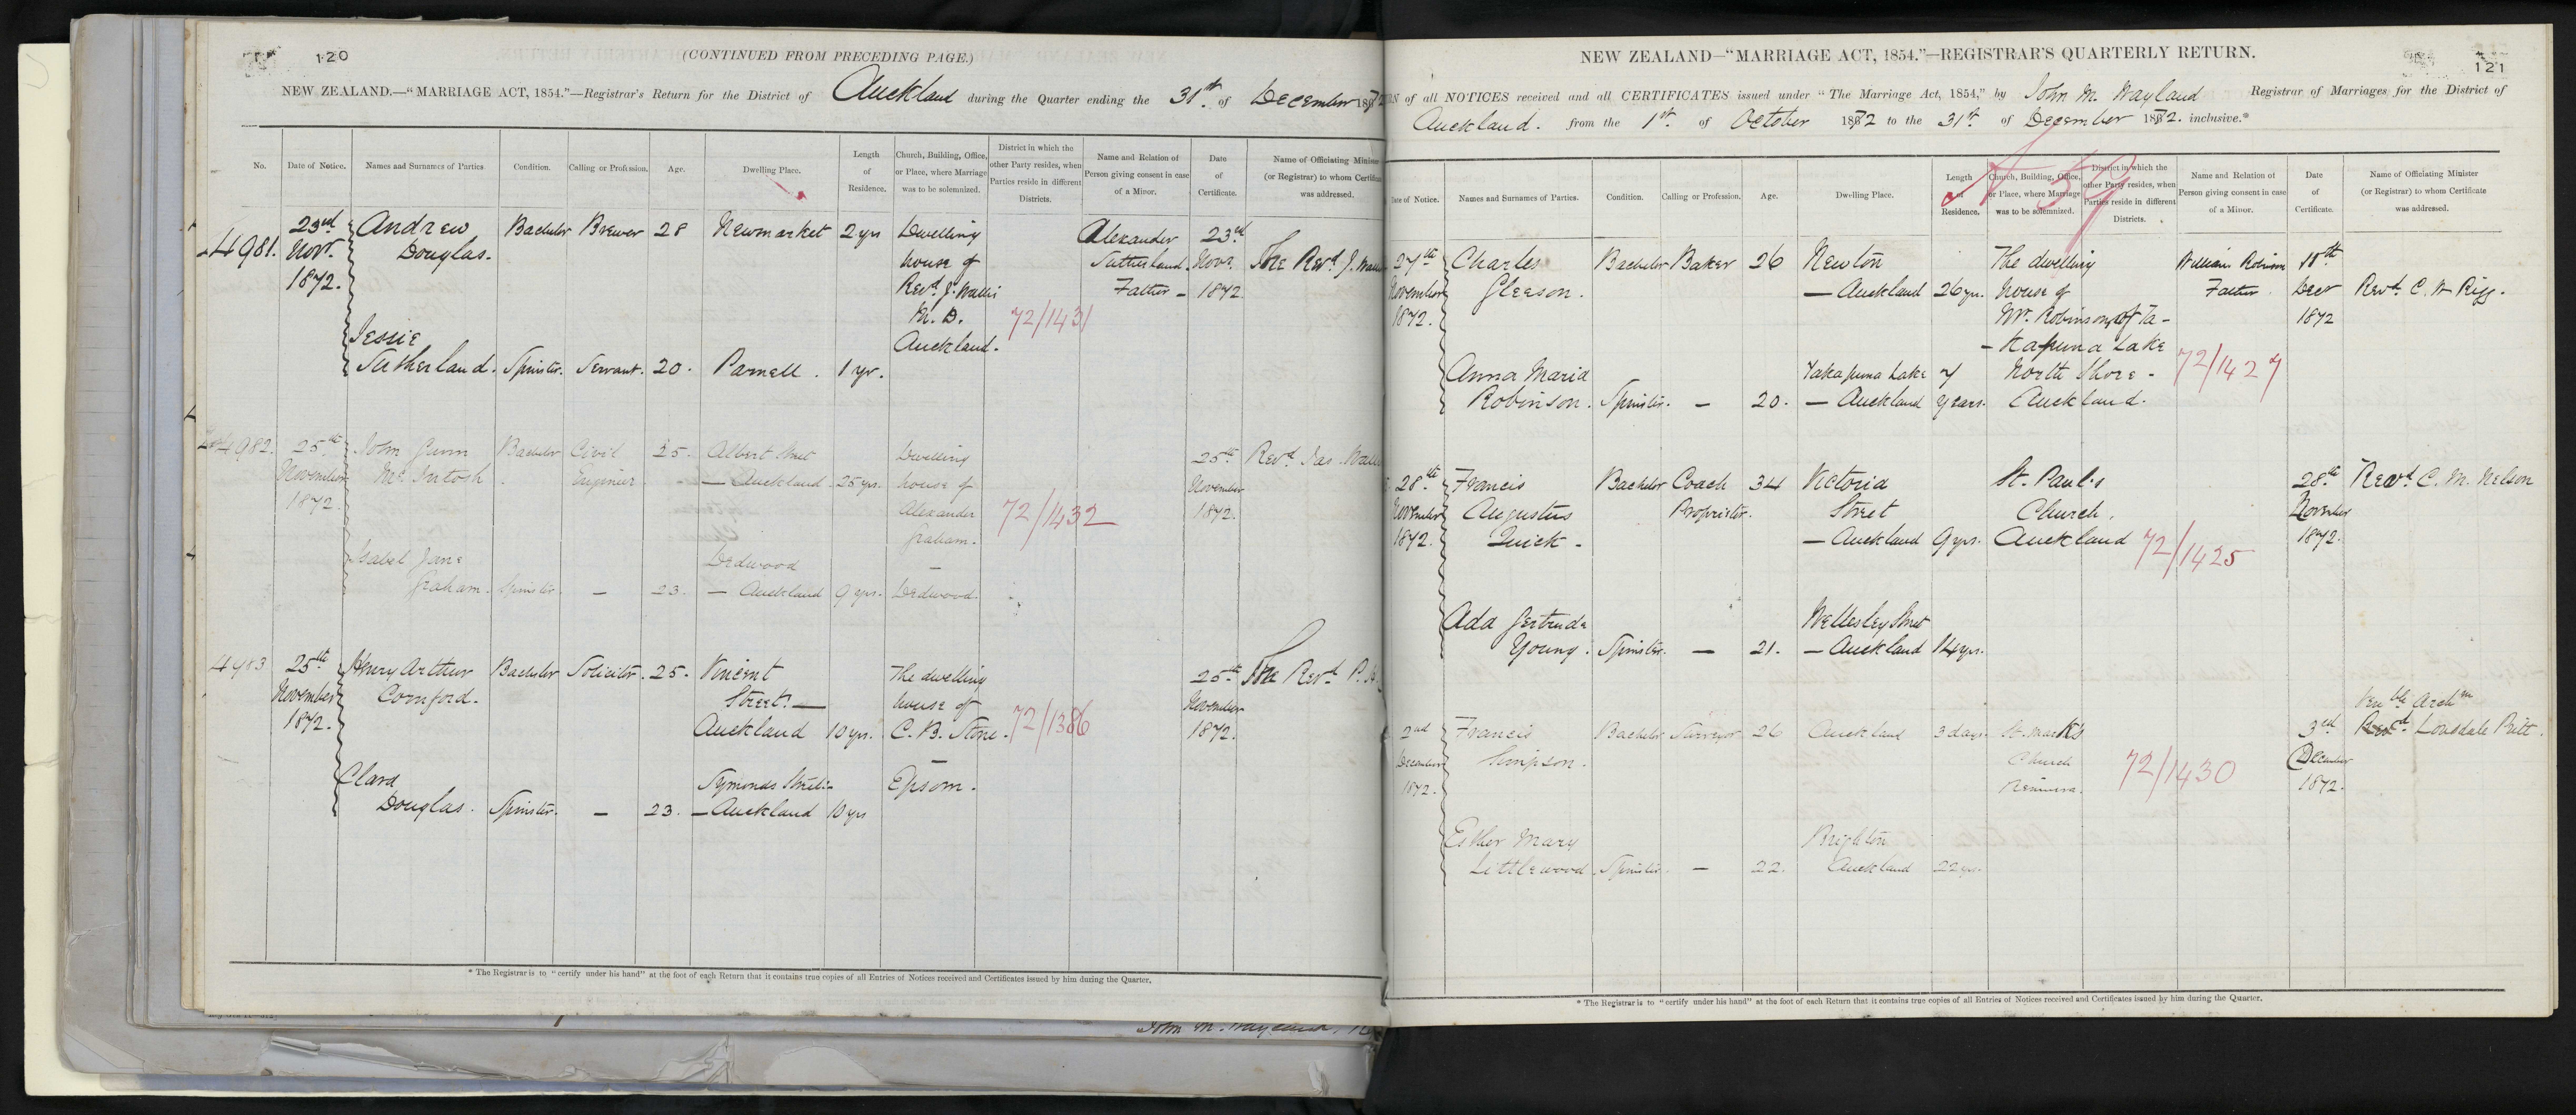 120
(CONTINUED FROM PRECEDING PAGE.)
NEW ZEALAND.—"MARRIAGE ACT, 1854."—Registrar's Return for the District of Auckland during the Quarter ending the 31st of December 1872
No. Date of Notice. Names and Surnames of Parties Condition. Calling or Profession. Age. Dwelling Place. Length of Residence. Church, Building, Office, or Place, where Marriage was to be solemnized. District in which the other Party resides, when Parties reside in different Districts. Name and Relation of Person giving consent in case of a Minor. Date of Certificate. Name of Officiating Minister (or Registrar) to whom Certificate was addressed.
4981. 23rd Novr. 1872. Andrew Douglas. Bachelor Brewer 28 Newmarket 2 yrs Dwelling house of Revd. J. Wallis M. D. Auckland. 72/1431 Alexander Sutherland. Father – 23rd Novr. 1872 The Revd. J.
Jessie Sutherland. Spinster. Servant. 20. Parnell. 1 yr.
4982. 25th November 1872. John Gunn McIntosh. Bachelor Civil Engineer 25. Albert Street — Auckland 25 yrs. Dwelling house of Alexander Graham. – Dedwood. 72/1432 25th November 1872. Revd. Jas.
Isabel Jane Graham. Spinster. — 23. Dedwood — Auckland 9 yrs.
4983 25th November 1872. Henry Arthur Cornford. Bachelor Solicitor. 25. Vincent Street. — Auckland 10 yrs. The dwelling house of C. B. Stone. – Epsom. 72/1386 25th November 1872. The Revd. P.
Clara Douglas. Spinster. — 23. Symonds Street. — Auckland 10 yrs
* The Registrar is to "certify under his hand" at the foot of each Return that it contains true copies of all Entries of Notices received and Certificates issued by him during the Quarter.
NEW ZEALAND—"MARRIAGE ACT, 1854."—REGISTRAR'S QUARTERLY RETURN.
121
of all NOTICES received and all CERTIFICATES issued under "The Marriage Act, 1854," by John M. Wayland Registrar of Marriages for the District of
Auckland. from the 1st. of October 1872 to the 31st. of December 1872. inclusive.*
Date of Notice. Names and Surnames of Parties. Condition. Calling or Profession. Age. Dwelling Place. Length of Residence. Church, Building, Office, or Place, where Marriage was to be solemnized. District in which the other Party resides, when Parties reside in different Districts. Name and Relation of Person giving consent in case of a Minor. Date of Certificate. Name of Officiating Minister (or Registrar) to whom Certificate was addressed.
27th November 1872. Charles Gleeson. Bachelor Baker 26 Newton — Auckland 26 yrs. The dwelling house of Mr. Robinson of Ta-kapuna Lake North Shore – Auckland. 72/1427 William Robinson Father. Decr 1872 Revd. C. W Rigg.
Anna Maria Robinson. Spinster. — 20. Takapuna Lake — Auckland 7 years.
28th November 1872. Francis Augustus Quick – Bachelor Coach Proprietor. 34 Victoria Street — Auckland 9 yrs. St. Paul's Church, Auckland 72/1425 28th November 1872. Revd. C. M. Nelson
Ada Gertrude Young. Spinster. — 21. Wellesley Street — Auckland 14 yrs.
2nd December 1872. Francis Simpson. Bachelor Surveyor 26 Auckland 3 days. St. Mark's Church Remuera. 72/1430 3rd December 1872. Venble Archn Revd. Lonsdale Pritt.
Esther Mary Littlewood. Spinster. — 22. Brighton Auckland 22 yrs.
* The Registrar is to "certify under his hand" at the foot of each Return that it contains true copies of all Entries of Notices received and Certificates issued by him during the Quarter.